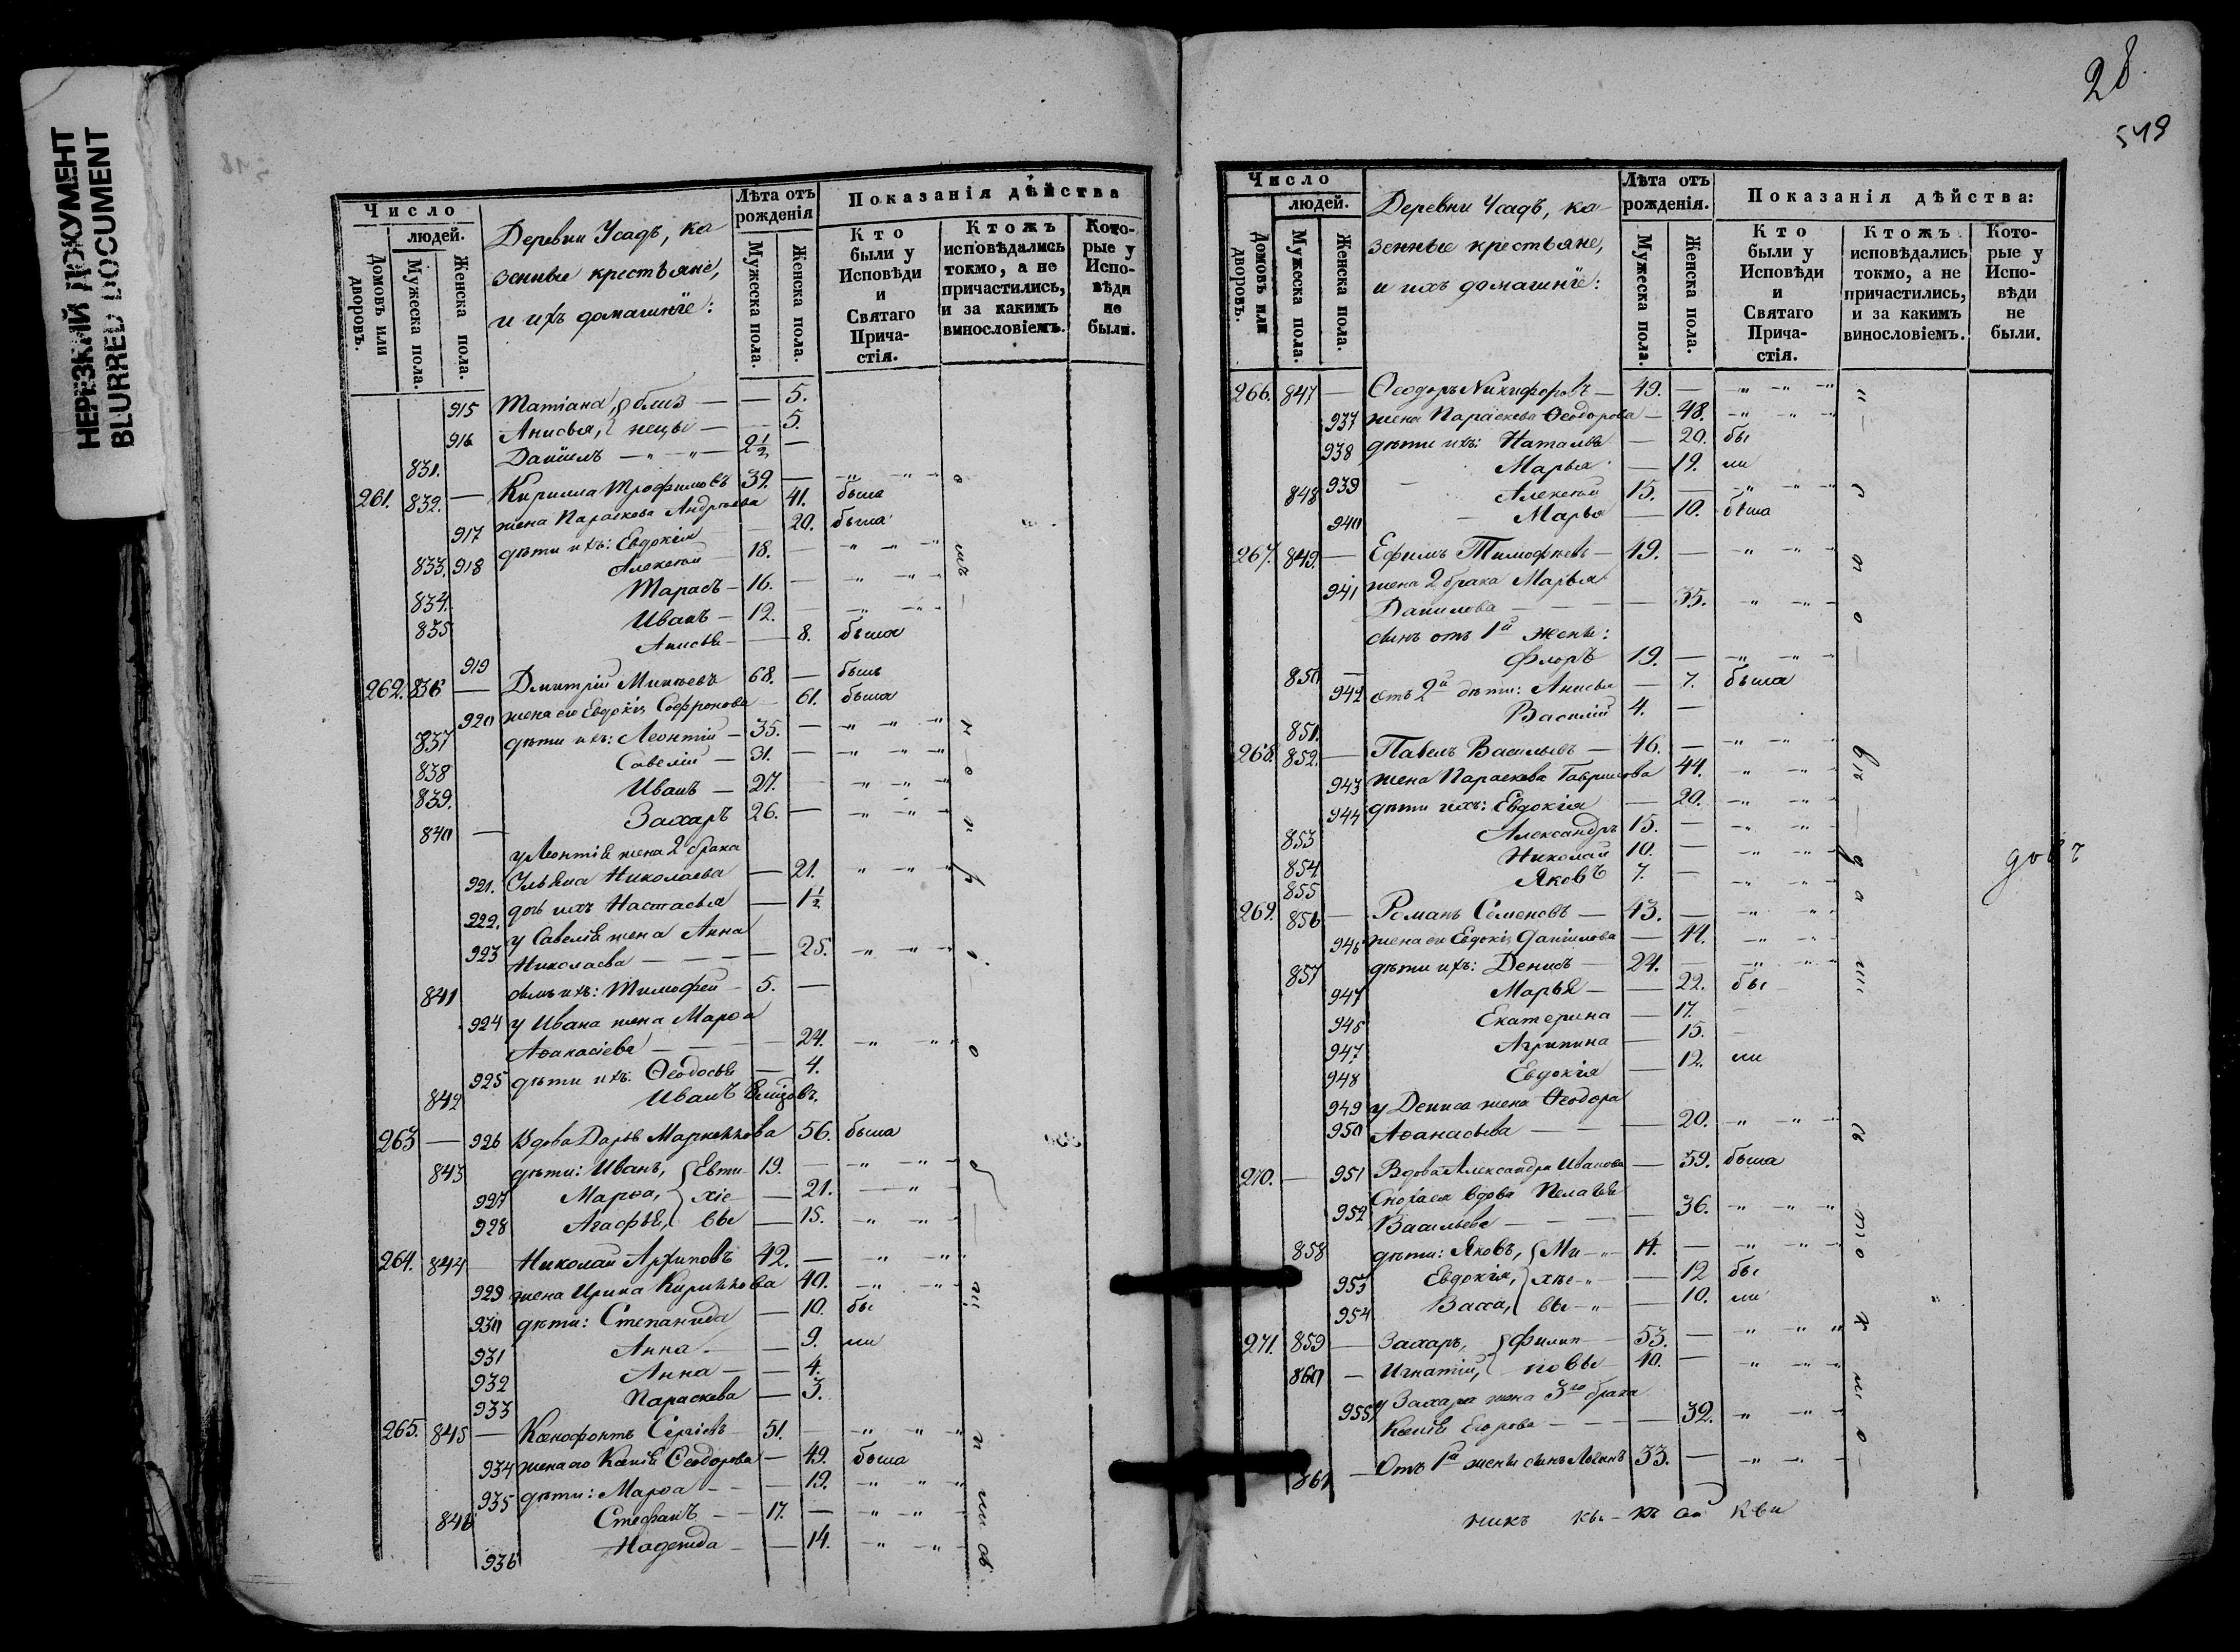 НЕРЕЗКИЙ ДОКУМЕНТ
BLURRED DOCUMENT
Число
людей.
Домовъ или дворовъ.
Мужеска пола.
Женска пола.
Деревни Усадъ, ка-
зенные крестьяне,
и ихъ домашніе:
Лѣта отъ рожденія
Мужеска пола.
Женска пола.
Показанія дѣйства
Кто были у Исповѣди и Святаго Прича-стія.
Ктожъ исповѣдались токмо, а не причастились, и за какимъ винословіемъ.
Кото-рые у Испо-вѣди не были.
915 Татіана, близ — — 5.
916 Анисья, нецы — — 5.
831. Даніилъ — 2½ —
261. 832. — Кирилла Трофимовъ 39. —
917 жена Параскева Андреева 41. была
918 дѣти ихъ: Евдокія — 20. была
833. Алексей — 18. —
834. Тарасъ — 16. —
835 Иванъ — 12. —
919 Анисья — — 8. была
262. 836 — Дмитрій Михѣевъ 68. — былъ
920 жена его Евдокія Софронова — 61. была
837 дѣти ихъ: Леонтій — 35. —
838 Савелій — 31. —
839. Иванъ — 27. —
840 — Захаръ 26. —
у Леонтія жена 2 брака
921. Ульяна Николаева — 21.
922. дочь ихъ Настасья — 1½
923 у Савелія жена Анна
Николаева — — — 25.
841 сынъ ихъ: Тимофей — 5. —
924 у Ивана жена Марѳа
Аѳанасіева — — — 24.
925 дѣти ихъ: Ѳеодосья — 4.
842 Иванъ
263 — 926 Вдова Дарья 56. была
843 дѣти: Иванъ, Евти- 19. —
927 Марѳа, хіе — 21.
928 Агафья, вы — 15.
264. 844 Николай Архиповъ 42. —
929 жена Ирина 40.
930 дѣти: Степанида — 10. бы
931 Анна — — 9. ли
932 Анна — — 4.
933 Параскева — 3.
265. 845 — Ксенофонтъ Сергіевъ 51. —
934 жена его Ксенія Ѳеодорова — 49. была
935 дѣти: Марѳа — — 19.
846 Стефанъ — 17. —
936 Надежда — — 14.
28.
519
Число
людей.
Домовъ или дворовъ.
Мужеска пола.
Женска пола.
Деревни Усадъ, ка-
зенные крестьяне,
и ихъ домашніе:
Лѣта отъ рожденія.
Мужеска пола.
Женска пола.
Показанія дѣйства:
Кто были у Исповѣди и Святаго Прича-стія.
Ктожъ исповѣдались токмо, а не причастились, и за какимъ винословіемъ.
Кото-рые у Испо-вѣди не были.
266. 847 — Ѳеодоръ Никифоровъ — 49. —
937 жена Параскева Ѳеодорова — 48.
938 дѣти ихъ: Наталья — 20. бы
939 Марья — 19. ли
848 Алексей 15. —
940 Марья — 10. была
267. 849. — Ефимъ Тимофѣевъ — 49. —
941 жена 2 брака Марья
Данилова — — — 35.
сынъ отъ 1й жены:
850 — Флоръ 19. —
942 отъ 2й дѣти: Анисья — 7. была
851. Василій 4. —
268. 852. — Павелъ Васильевъ — 46. —
943 жена Параскева Гаврилова 44.
944 дѣти ихъ: Евдокія — 20.
853 Александръ 15. —
854 Николай 10. —
855 Яковъ 7. —
269. 856 — Романъ Семеновъ — 43. —
946 жена его Евдокія Даніилова — 44.
857 дѣти ихъ: Денисъ — 24. —
947 Марья — — 22. бы
946 Екатерина — 17.
947 Агрипина — 15.
948 Евдокія — 12. ли
949 у Дениса жена Ѳеодора
950 Аѳанасьева — — — 20.
270. — 951 Вдова Александра Иванова — 59. была
952 Сноха ея вдова Пелагея
Васильева — — — 36.
858 дѣти: Яковъ, Ми- 14. —
953 Евдокія, хѣе- — 12 бы
954 Васса, вы- — 10. ли
271. 859 — Захаръ, Филип- 53. —
860 — Игнатій, повы — 40. —
955 у Захара жена 3го брака
Ксенія Егорова — — — 32.
861 — Отъ 1й жены сынъ 33. —